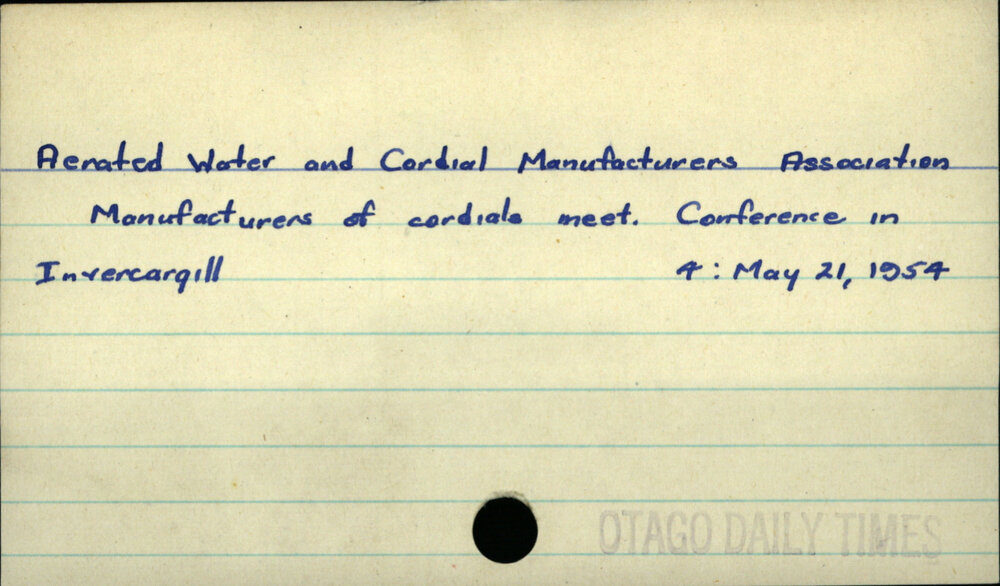 Aerated Water and Cordial Manufacturers Association
Manufacturers of cordials meet. Conference in
Invercargill 4: May 21, 1954
OTAGO DAILY TIMES